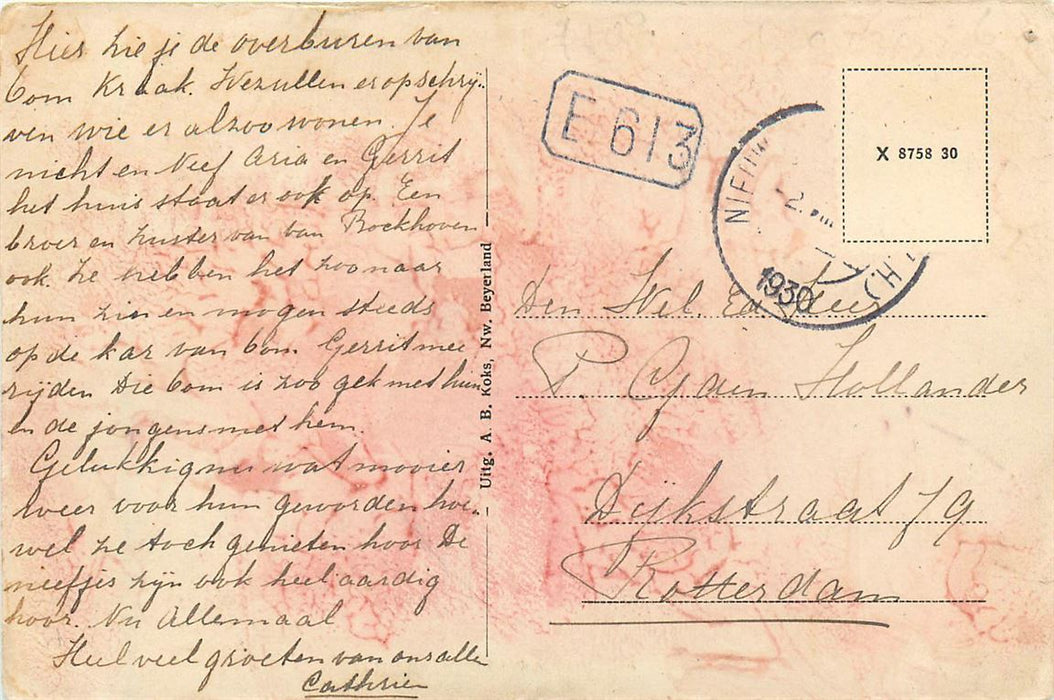 Hier zie je de overburen van
Oom Kraak. We zullen er op schrij-
ven wie er alzoo wonen. Je
nicht en Neef Aria en Gerrit
het huis staat er ook op. Een
broer en zuster van van Bockhoven
ook. Ze hebben het zoo naar
hun zin en mogen steeds
op de kar van Oom Gerrit mee
rijden Die Oom is zoo gek met hun
en de jongens met hem.
Gelukkig nu wat mooier
weer voor hun geworden hoe-
wel ze toch genieten hoor De
neefjes zijn ook heel aardig
hoor. Nu Allemaal
Heel veel groeten van ons alle
Cathrien
Uitg. A. B. Koks, Nw. Beyerland
E 613
NIEUW
1930
X 8758 30
Den Wel. Ed.
P. Cy den Hollander
Dijkstraat 79
Rotterdam